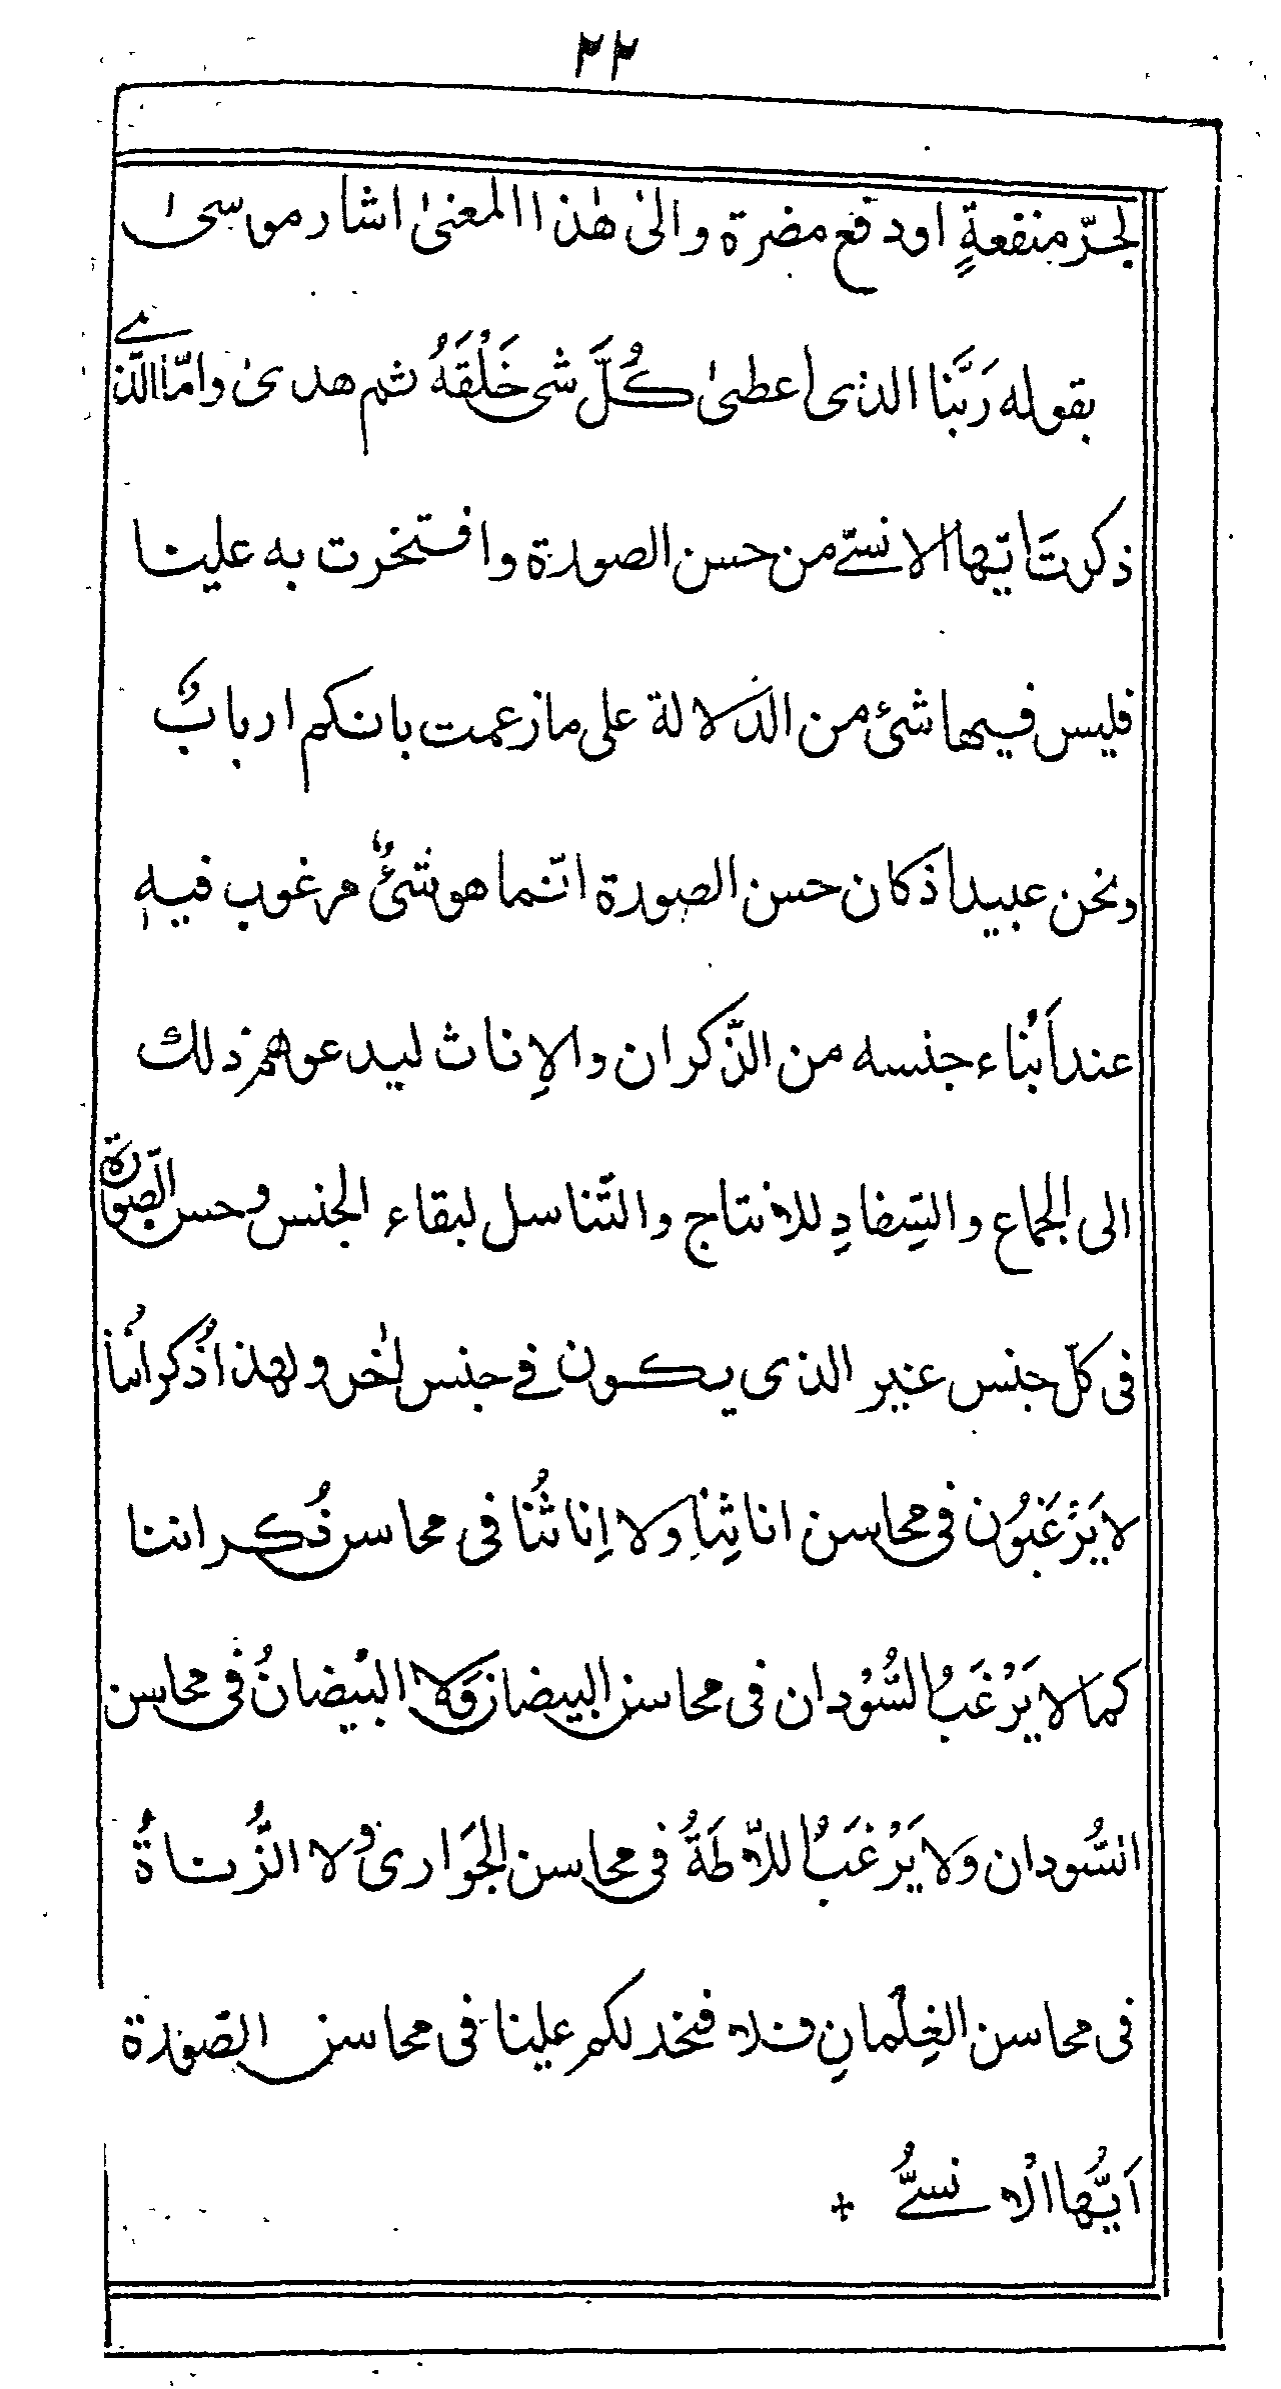 ٢٢
لجرّ منفعةٍ اودفع مضرة والىٰ هٰذا المعنىٰ اشار موسىٰ
بقوله رَبَّنا الذى اعطىٰ كُلَّ شى خَلْقَهُ ثم هدىٰ وامّا الّذى
ذكرتَ ايّها الانسىّ من حسن الصورة وافتخرت به علينا
فليس فيها شئ من الدّلالة على مازعمت بانكم اربابٌ
ونحن عبيد اذكان حسن الصورة انّما هو شئٌ مرغوب فيهِ
عند اَبْناء جنسه من الذّكران والاِناث ليدعوهم ذلك
الى الجماع والسِّفادِ للانتاج والتّناسل لبقاء الجنس وحسن الصّورة
فى كلّ جنس غير الذى يكون فى جنس اٰخر ولهذا ذُكرانُنا
لا يَرْغَبُون فى محاسن اناثِنا ولا اِناثُنا فى محاسن ذُكراننا
كما لا يَرْغَبُ السُّوْدان فى محاسن البيضان وَلا البْيضانُ فى محاسن
السُّودان وَلا يَرْغَبُ اللّاطَةُ فى محاسن الجَوَارىْ ولا الزُّناةُ
فى محاسن الغِلْمانِ فلا فخر لكم علينا فى محاسن الصّورة
اَيُّها الْانسىُّ +